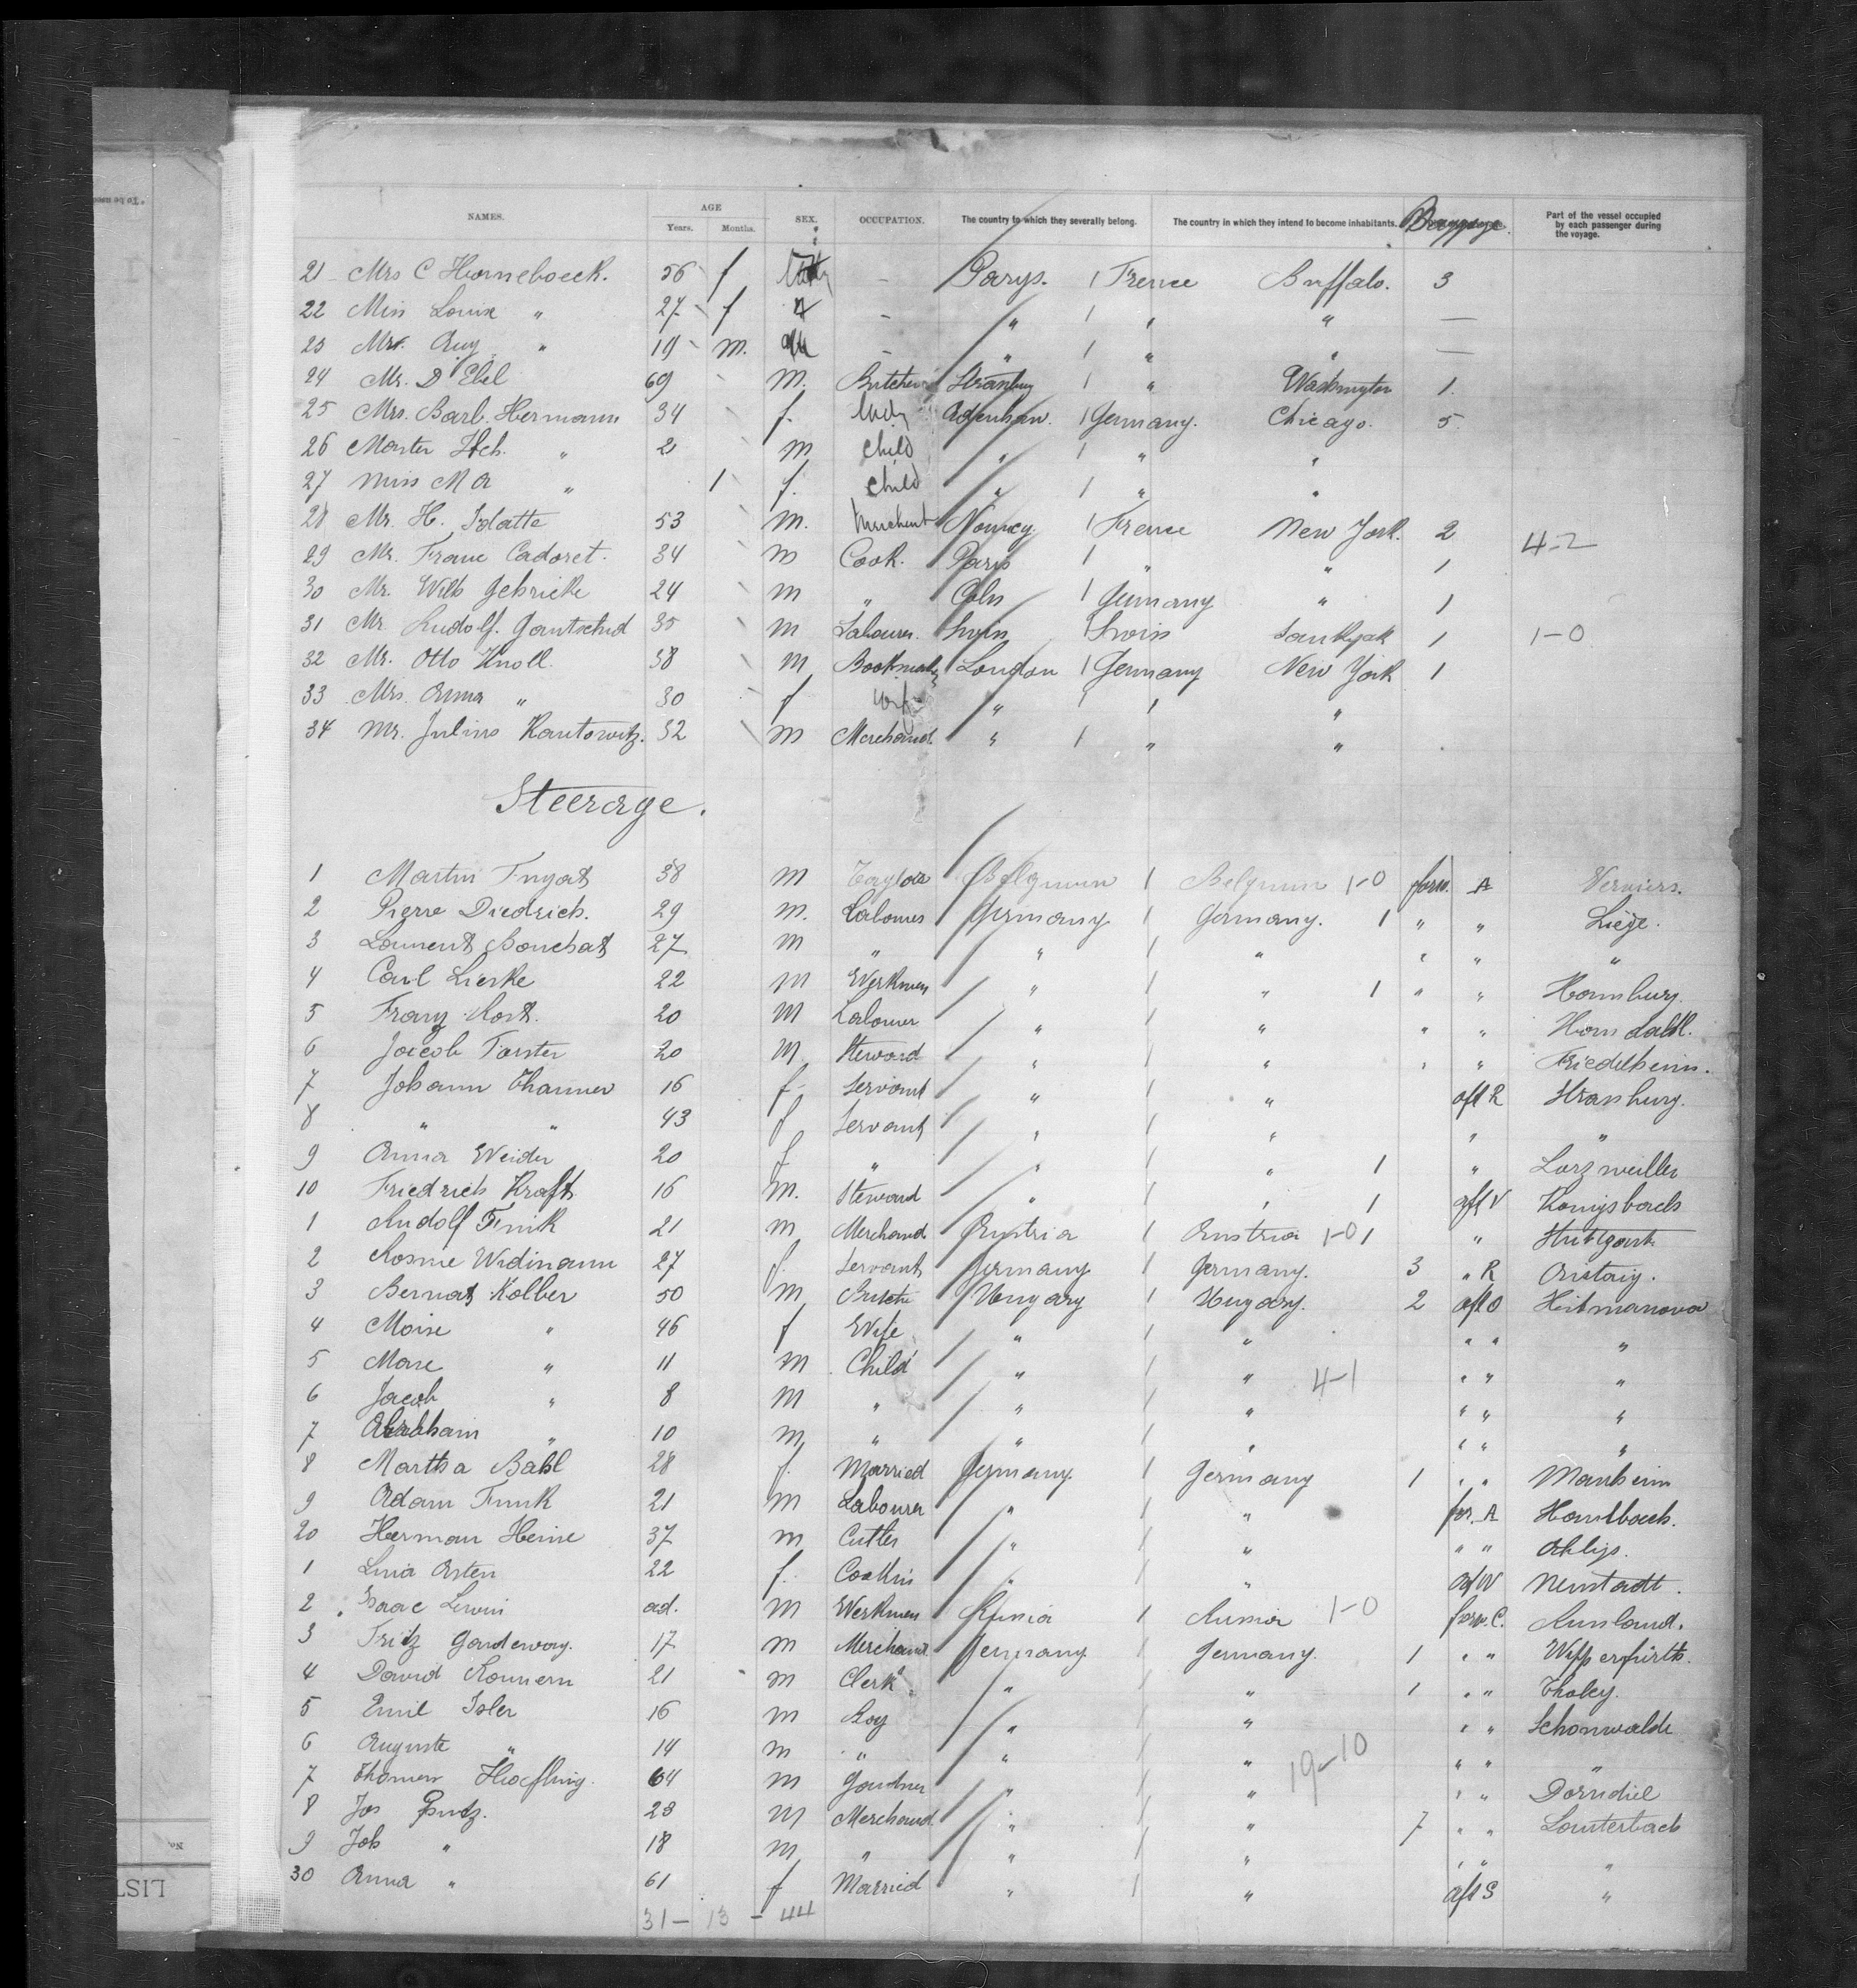 NAMES. AGE Years. Months. SEX. OCCUPATION. The country to which they severally belong. The country in which they intend to become inhabitants. Part of the vessel occupied by each passenger during the voyage.
21 Mrs C Horneboeck. 56 f Parys. 1 France Buffalo. 3
22 Miss Louise " 27 f - " 1 " " —
23 Mr. Aug " 19 m. - " 1 " " —
24 Mr. D Ebel 69 m. Butcher 1 " Washington 1.
25 Mrs. Barb. Hermann 34 f. lady 1 Germany. Chicago. 5.
26 Master Hch. " 2 m child " 1 " "
27 Miss M A " 1 f. child " 1 " "
28 Mr. H. 53 m. Merchant Nancy 1 France New York. 2 4-2
29 Mr. Franc Cadoret. 34 m Cook. Paris 1 " " 1
30 Mr. Wilh Gehricke 24 m " Coln 1 Germany " 1
31 Mr. Rudolf. 35 m Labourer. Swiss 1 Swiss 1 1-0
32 Mr. Otto Knoll. 38 m London 1 Germany New York 1
33 Mrs. Anna " 30 f wife " 1 " "
34 Mr. Julius Kantowitz. 32 m Merchand. " 1 " "
Steerage.
1 Martin 38 m Taylor Belgium 1 Belgium 1-0 forw. A Verviers.
2 Pierre Diedrich. 29 m. Labourer Germany 1 Germany. 1 " " Liége.
3 Laurent Bouchat 27 m " " 1 " " " "
4 Carl Lierke 22 m Werkmen " 1 " 1 " " Hamburg.
5 Franz Kost. 20 m Labourer " 1 " " "
6 Jacob Forster 20 m Steward " 1 " " " Friedelheim.
7 Johann Thanner 16 f. Servant " 1 " aft R Strasburg.
8 " " 43 f Servant " 1 " " "
9 Anna Weider 20 f " " 1 " 1 " Lorzweiller
10 Friedrich Kraft 16 m. Steward " 1 " 1 aft V Konigsbach
1 Rudolf Funk 21 m Merchand Austria 1 Austria 1-0 1 " Stuttgart
2 Rosine Widmann 27 f. Servant Germany 1 Germany. 3 " R
3 Bernat Kolber 50 m Hungary 1 Hungary. 2 aft O Hitmanova
4 " 46 f Wife " 1 " " " "
5 " 11 m Child " 1 " 4-1 " " "
6 Jacob " 8 m " " 1 " " " "
7 Abraham " 10 m " " 1 " " " "
8 Martha Bahl 28 f. Married Germany 1 Germany 1 " " Manheim
9 Adam Funk 21 m Labourer " 1 " for. A
20 Herman Heine 37 m Cutler " 1 " " " Ohligs.
1 Lina Osten 22 f. " 1 " Neustadt.
2 Isaac Lewin ad. m Werkmen Russia 1 Russia 1-0 forw. C. Russland.
3 Fritz 17 m Merchand Germany 1 Germany. 1 " " Wipperfürth.
4 David 21 m Clerk " 1 " 1 " " Tholey.
5 Emil Isler 16 m Boy " 1 " " " Schonwalde
6 Auguste " 14 m " " 1 " 19-10 " " "
7 Thomas Hoefling. 64 m Gardner " 1 " " " Dorndiel
8 Jos 23 m Merchand " 1 " 7 " " Lauterbach
9 Joh " 18 m " " 1 " " " "
30 Anna " 61 f Married " 1 " aft S "
31 - 13 - 44
LIST